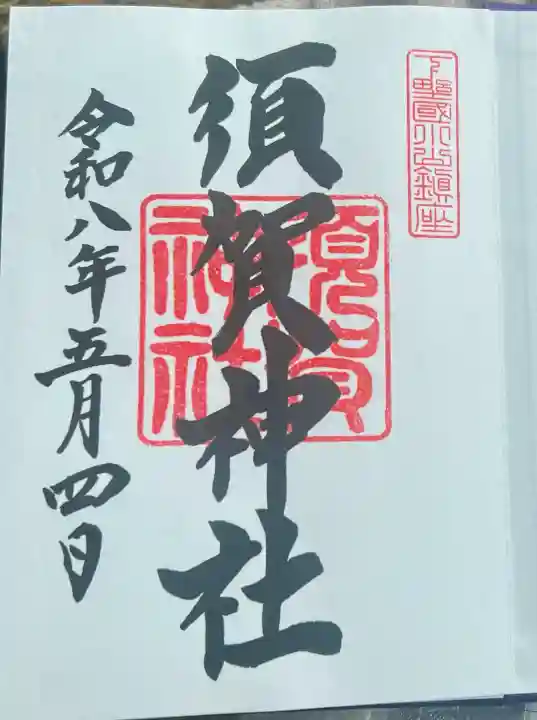 下野國小山鎮座
須賀神社
須賀神社
令和八年五月四日